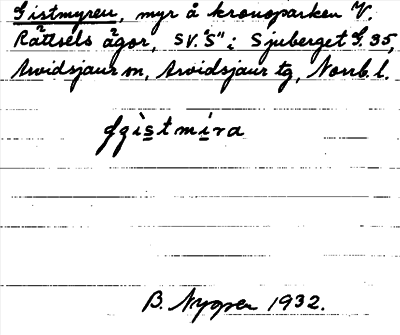 Gistmyren, myr å kronoparken V.
Rättsels ägor, SV. "S" i Sjuberget G. 35,
Arvidsjaur sn, Arvidsjaur tg, Norrb. l.
jis̲tmi̲ra
B. Nygren 1932.